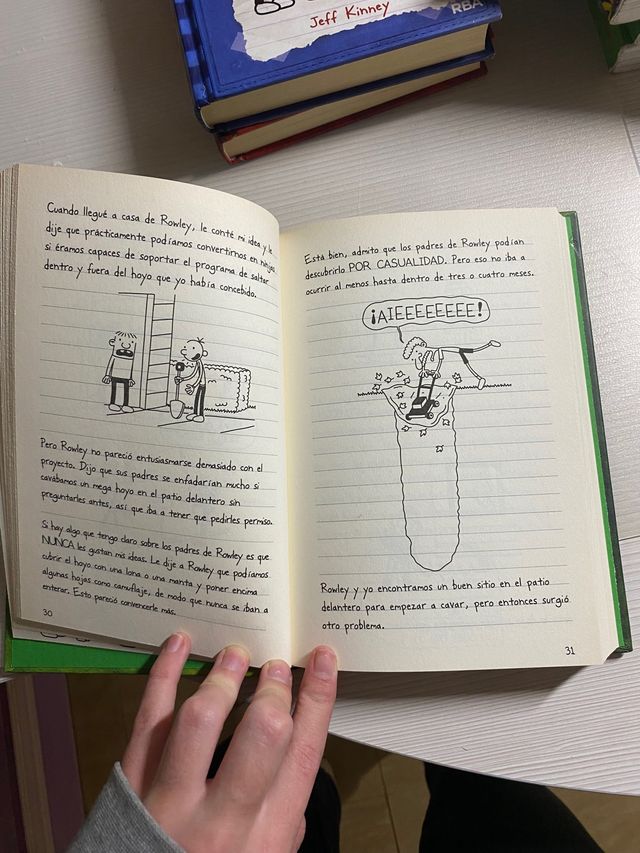 Jeff Kinney
RBA
Cuando llegué a casa de Rowley, le conté mi idea y le
dije que prácticamente podíamos convertirnos en ninjas
si éramos capaces de soportar el programa de saltar
dentro y fuera del hoyo que yo había concebido.
Pero Rowley no pareció entusiasmarse demasiado con el
proyecto. Dijo que sus padres se enfadarían mucho si
cavábamos un mega hoyo en el patio delantero sin
preguntarles antes, así que iba a tener que pedirles permiso.
Si hay algo que tengo claro sobre los padres de Rowley es que
NUNCA les gustan mis ideas. Le dije a Rowley que podíamos
cubrir el hoyo con una lona o una manta y poner encima
algunas hojas como camuflaje, de modo que nunca se iban a
enterar. Esto pareció convencerle más.
30
Está bien, admito que los padres de Rowley podían
descubrirlo POR CASUALIDAD. Pero eso no iba a
ocurrir al menos hasta dentro de tres o cuatro meses.
¡AIEEEEEEEE!
Rowley y yo encontramos un buen sitio en el patio
delantero para empezar a cavar, pero entonces surgió
otro problema.
31